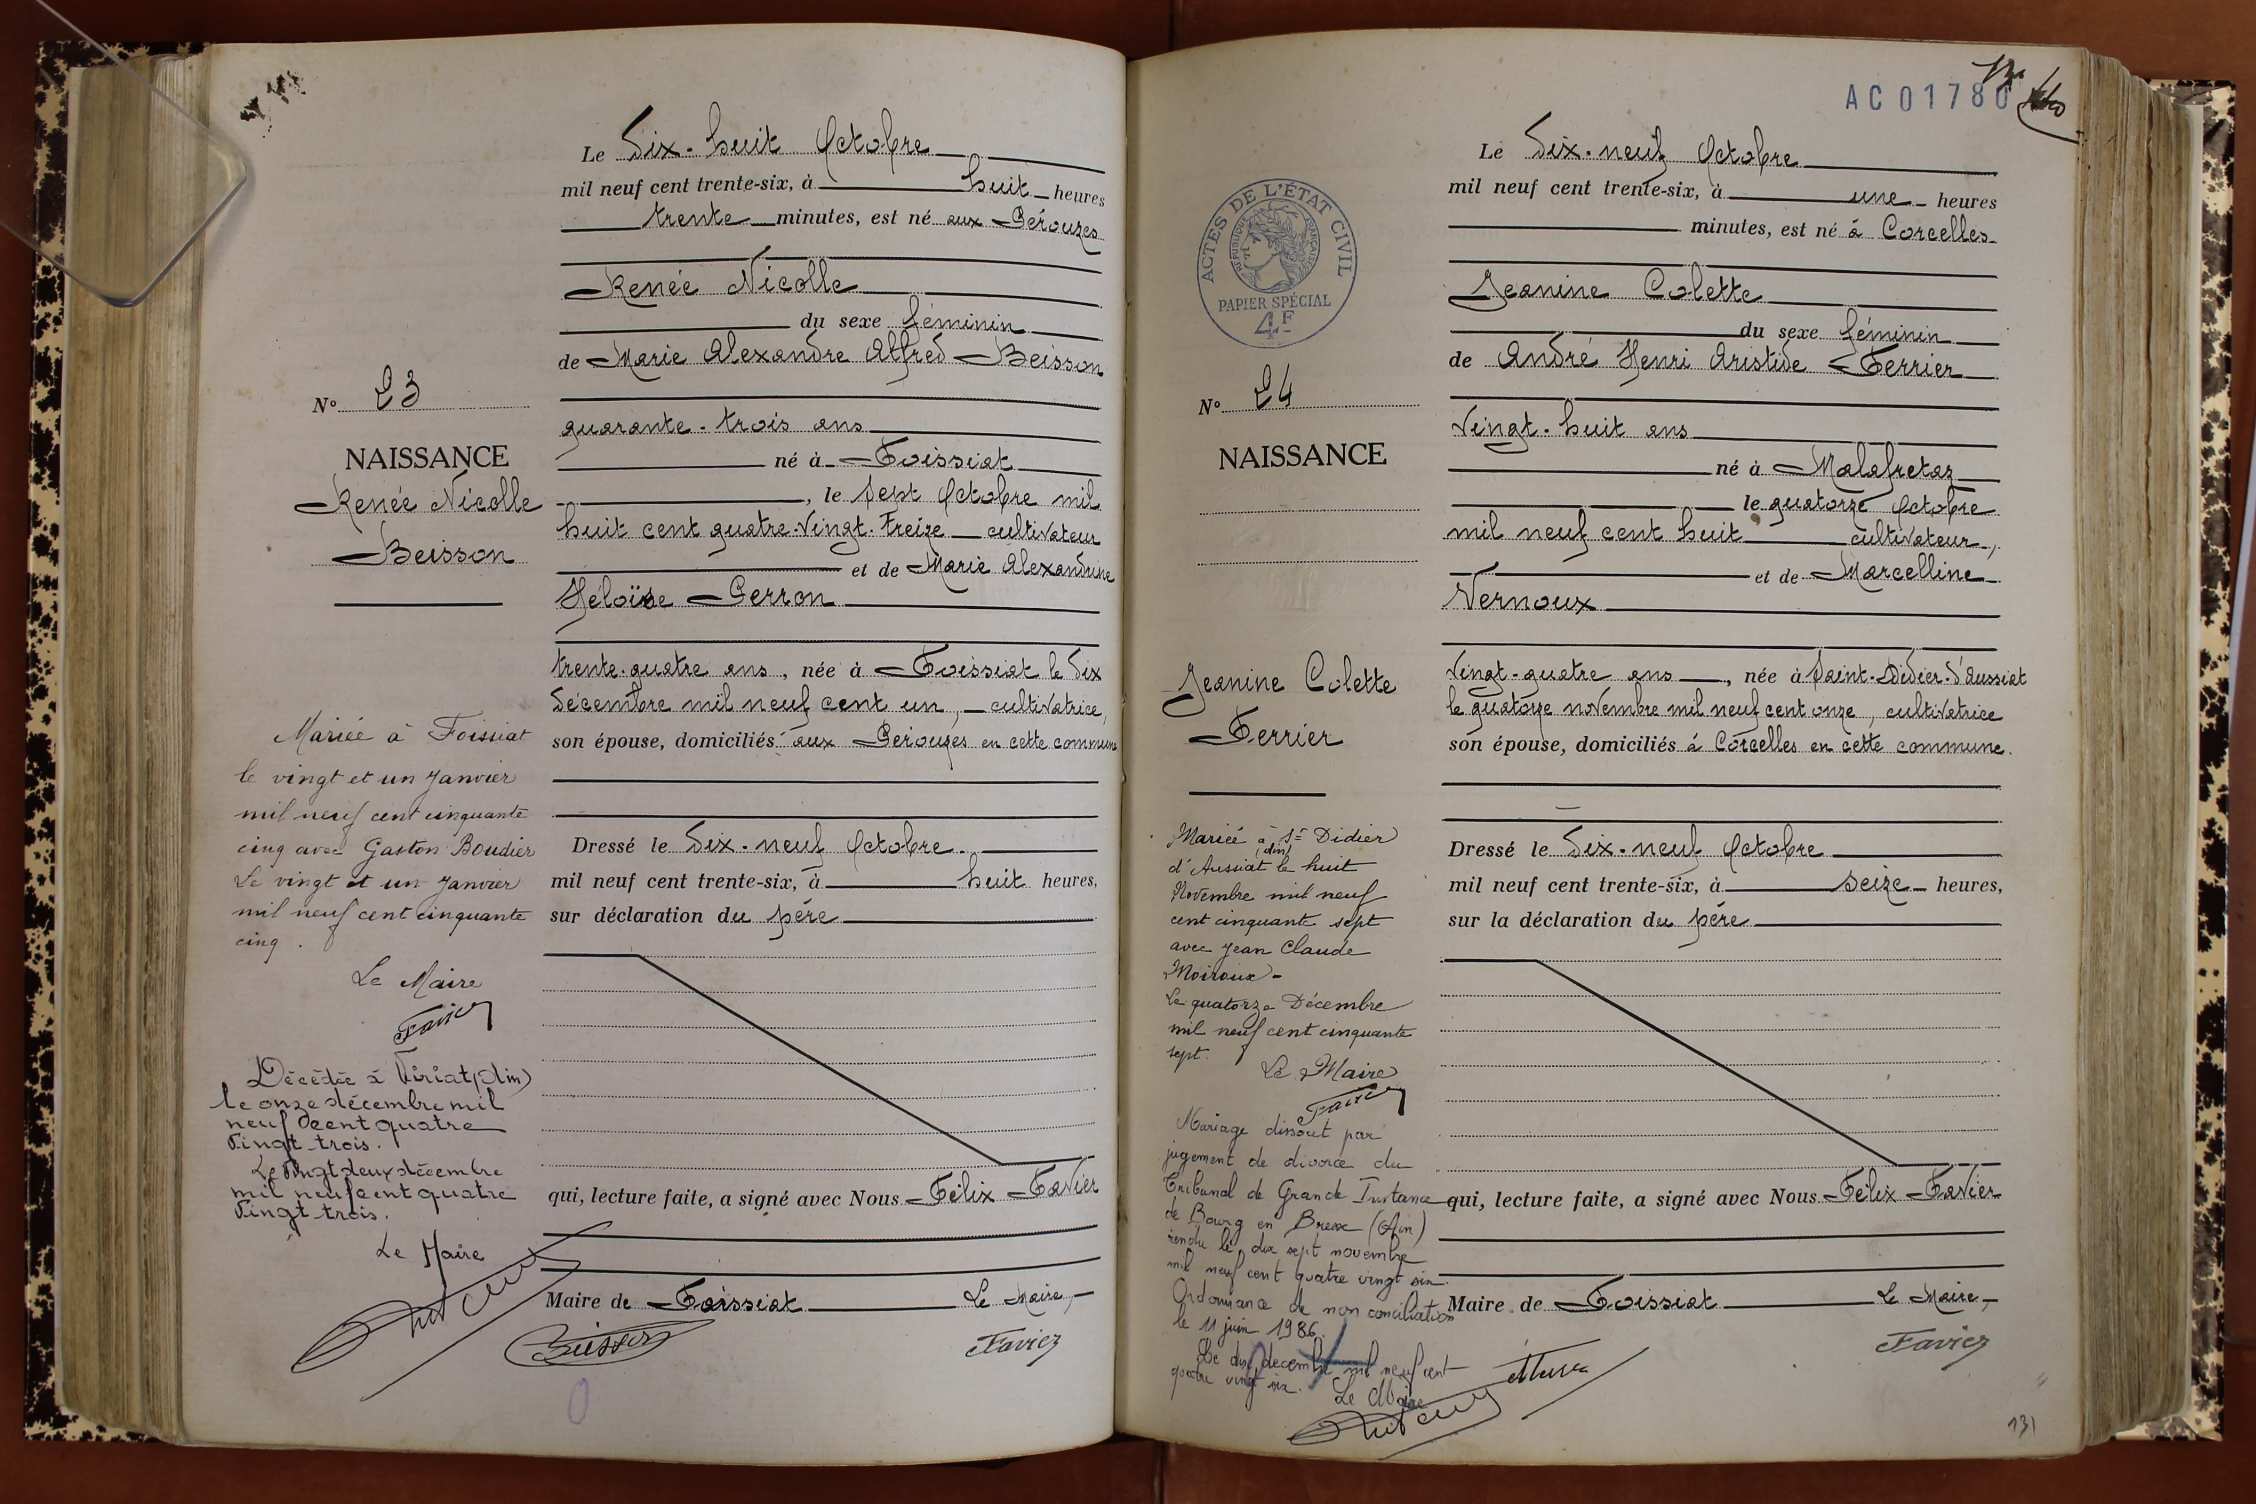 Le Dix-huit Octobre
mil neuf cent trente-six, à huit heures
trente minutes, est né aux Pérouzes
Renée Nicolle
du sexe féminin
de Marie Alexandre Alfred Beisson
N° 23
quarante-trois ans
NAISSANCE
né à Foissiat
Renée Nicolle
, le sept Octobre mil
huit cent quatre-vingt-treize cultivateur
Beisson
et de Marie Alexandrine
Héloïse Perron
trente-quatre ans, née à Foissiat le Dix
Décembre mil neuf cent un, cultivatrice,
son épouse, domiciliés aux Pérouzes en cette commune
Mariée à Foissiat
le vingt et un Janvier
mil neuf cent cinquante
cinq avec Gaston Boudier
Le vingt et un Janvier
mil neuf cent cinquante
cinq.
Le Maire
Favier
Dressé le Dix-neuf Octobre
mil neuf cent trente-six, à huit heures,
sur déclaration du père
Décédée à Viriat (Ain)
le onze décembre mil
neuf cent quatre
vingt trois.
Le vingt deux décembre
mil neuf cent quatre
vingt trois.
Le Maire
qui, lecture faite, a signé avec Nous Félix Favier
Maire de Foissiat Le Maire,
Beisson
Favier
AC 01780
Le Dix-neuf Octobre
mil neuf cent trente-six, à une heures
minutes, est né à Corcelles
ACTES DE L'ÉTAT CIVIL
RÉPUBLIQUE FRANÇAISE
PAPIER SPÉCIAL
4F
Jeanine Colette
du sexe féminin
de André Henri Aristide Ferrier
N° 24
Vingt-huit ans
NAISSANCE
né à Malafretaz
le quatorze Octobre
mil neuf cent huit cultivateur,
et de Marcelline
Vernoux
Jeanine Colette
Ferrier
vingt-quatre ans, née à Saint-Didier-d'Aussiat
le quatorze novembre mil neuf cent onze, cultivatrice
son épouse, domiciliés à Corcelles en cette commune.
Mariée à St Didier
d'Aussiat (Ain) le huit
Novembre mil neuf
cent cinquante sept
avec Jean Claude
Moiroux -
Le quatorze Décembre
mil neuf cent cinquante
sept.
Le Maire
Favier
Dressé le Dix-neuf Octobre
mil neuf cent trente-six, à seize heures,
sur la déclaration du père
Mariage dissout par
jugement de divorce du
Tribunal de Grande Instance
de Bourg en Bresse (Ain)
rendu le dix sept novembre
mil neuf cent quatre vingt six.
Ordonnance de non conciliation
le 11 juin 1986.
Le dix decembre mil neuf cent
quatre vingt six.
Le Maire
qui, lecture faite, a signé avec Nous Félix Favier
Maire de Foissiat Le Maire,
Favier
131